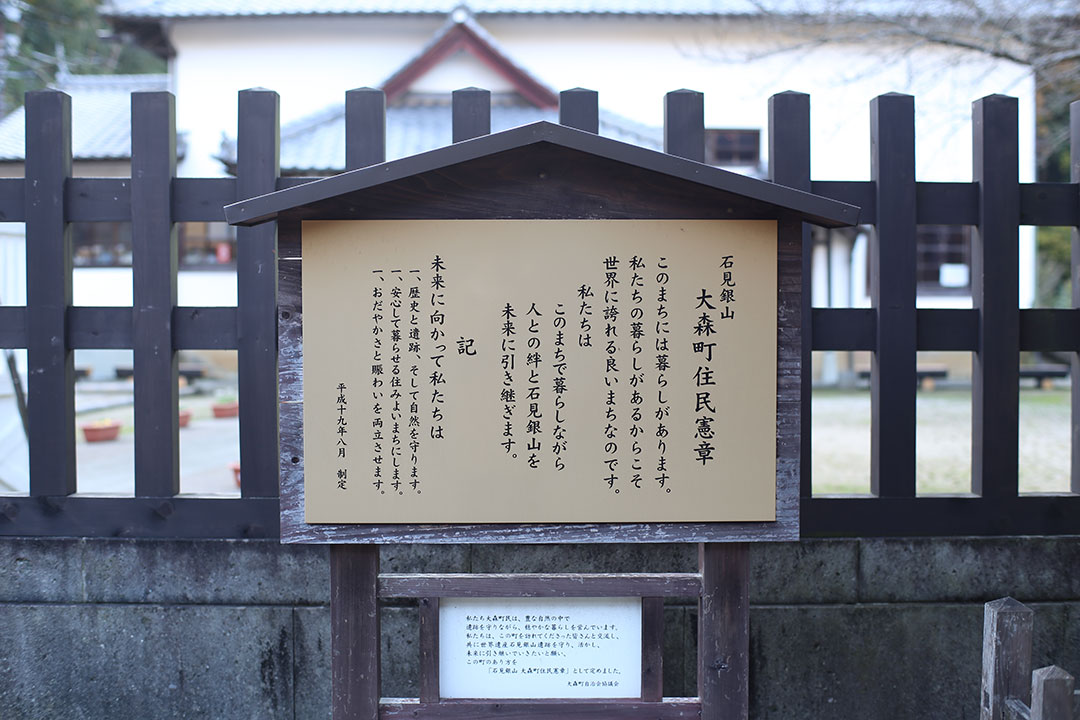 石見銀山
大森町住民憲章
このまちには暮らしがあります。
私たちの暮らしがあるからこそ
世界に誇れる良いまちなのです。
私たちは
このまちで暮らしながら
人との絆と石見銀山を
未来に引き継ぎます。
記
未来に向かって私たちは
一、歴史と遺跡、そして自然を守ります。
一、安心して暮らせる住みよいまちにします。
一、おだやかさと賑わいを両立させます。
平成十九年八月 制定
私たち大森町民は、豊な自然の中で
遺跡を守りながら、穏やかな暮らしを営んでいます。
私たちは、この町を訪れてくださった皆さんと交流し、
共に世界遺産石見銀山遺跡を守り、活かし、
未来に引き継いでいきたいと願い、
この町のあり方を
「石見銀山 大森町住民憲章」として定めました。
大森町自治会協議会